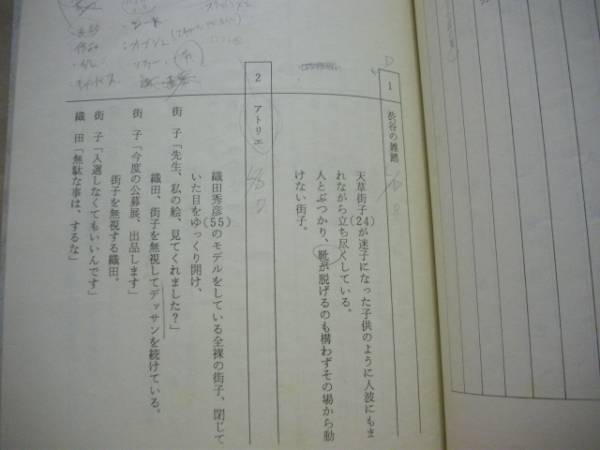 1 渋谷の雑踏
天草街子(24)が迷子になった子供のように人波にもま
れながら立ち尽くしている。
人とぶつかり、靴が脱げるのも構わずその場から動
けない街子。
2 アトリエ
織田秀彦(55)のモデルをしている全裸の街子、閉じて
いた目をゆっくり開け、
街 子「先生、私の絵、見てくれました？」
織田、街子を無視してデッサンを続けている。
街 子「今度の公募展、出品します」
街子を無視する織田。
街 子「入選しなくてもいいんです」
織 田「無駄な事は、するな」